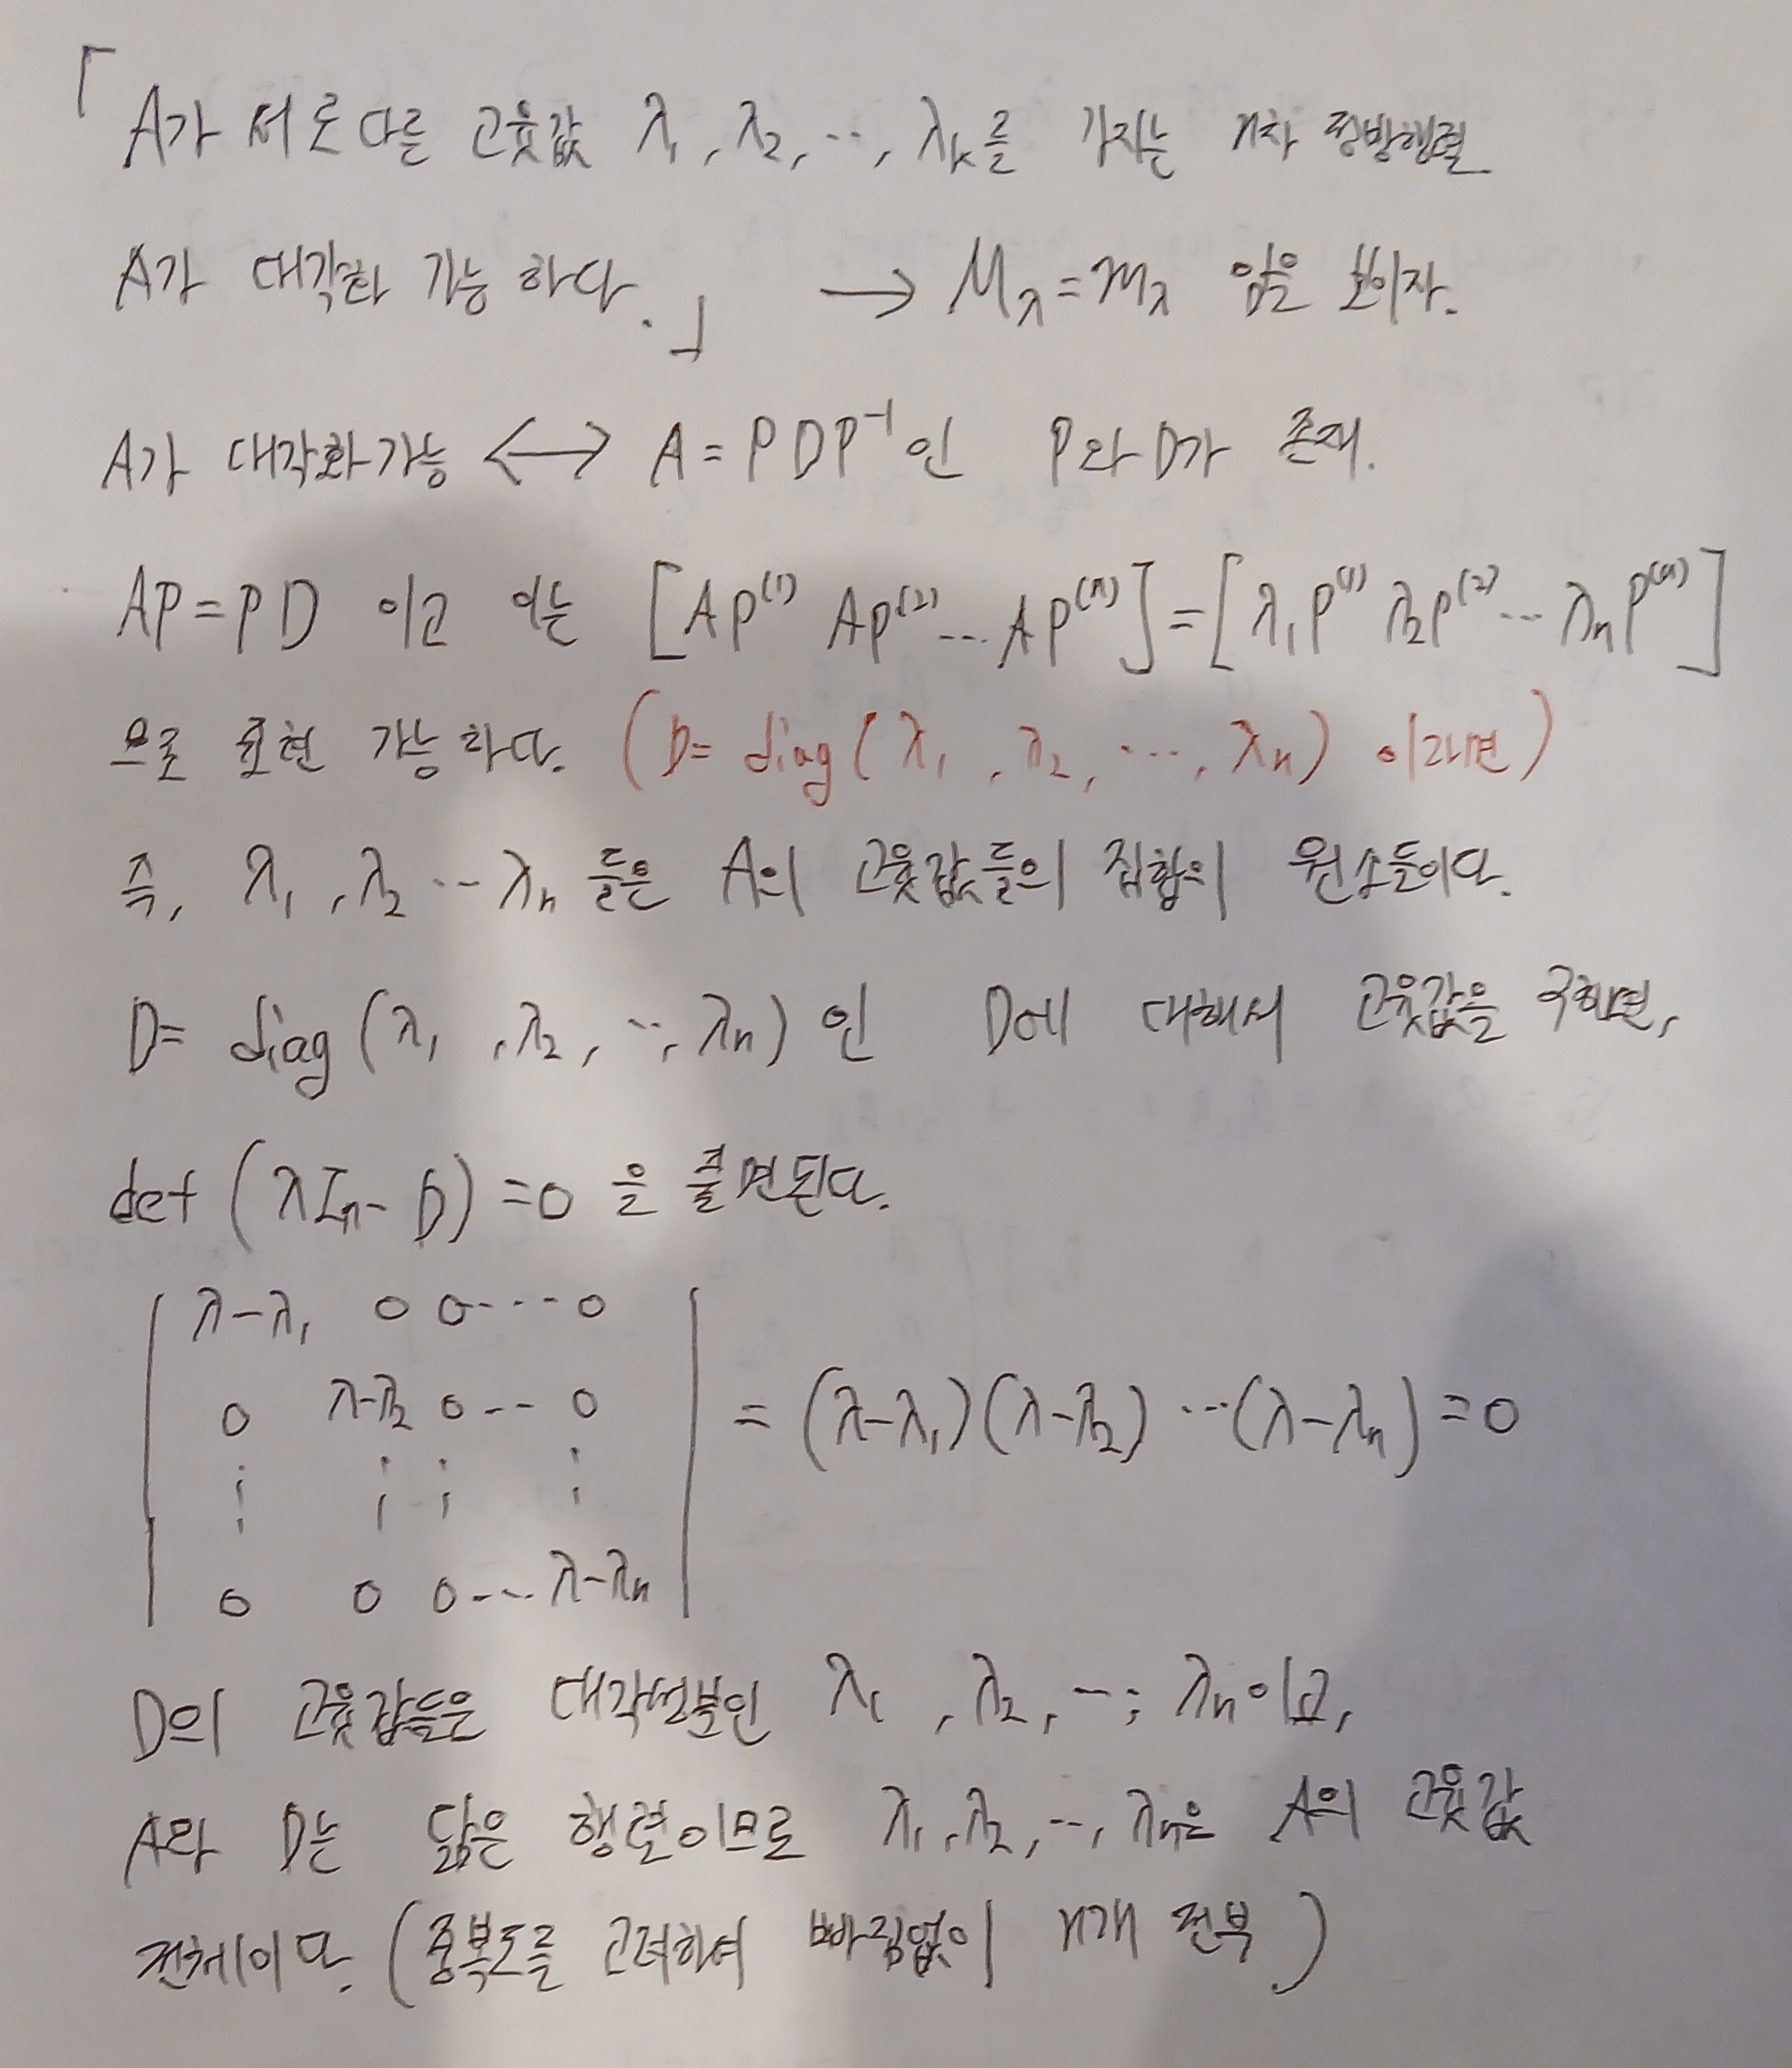 「A가 서로 다른 고윳값 λ₁, λ₂, ..., λₖ를 가지는 n차 정방행렬
A가 대각화 가능 하다.」 → M_λ = m_λ 임을 보이자.
A가 대각화가능 ⟷ A = PDP⁻¹인 P와 D가 존재.
AP = PD 이고 이는 [AP⁽¹⁾ AP⁽²⁾ ... AP⁽ⁿ⁾] = [λ₁P⁽¹⁾ λ₂P⁽²⁾ ... λₙP⁽ⁿ⁾]
으로 표현 가능하다. (D = diag(λ₁, λ₂, ..., λₙ) 이라면)
즉, λ₁, λ₂ ... λₙ 들은 A의 고윳값들의 집합의 원소들이다.
D = diag(λ₁, λ₂, ..., λₙ)인 D에 대해서 고윳값을 구하면,
det(λIₙ - D) = 0 을 풀면된다.
| λ-λ₁ 0 0 ... 0 |
| 0 λ-λ₂ 0 ... 0 | = (λ-λ₁)(λ-λ₂) ... (λ-λₙ) = 0
| ⋮ ⋮ ⋮ ⋮ |
| 0 0 0 ... λ-λₙ |
D의 고윳값들은 대각성분인 λ₁, λ₂, ..., λₙ이고,
A와 D는 닮은 행렬이므로 λ₁, λ₂, ..., λₙ은 A의 고윳값
전체이다. (중복도를 고려하여 빠짐없이 n개 전부.)